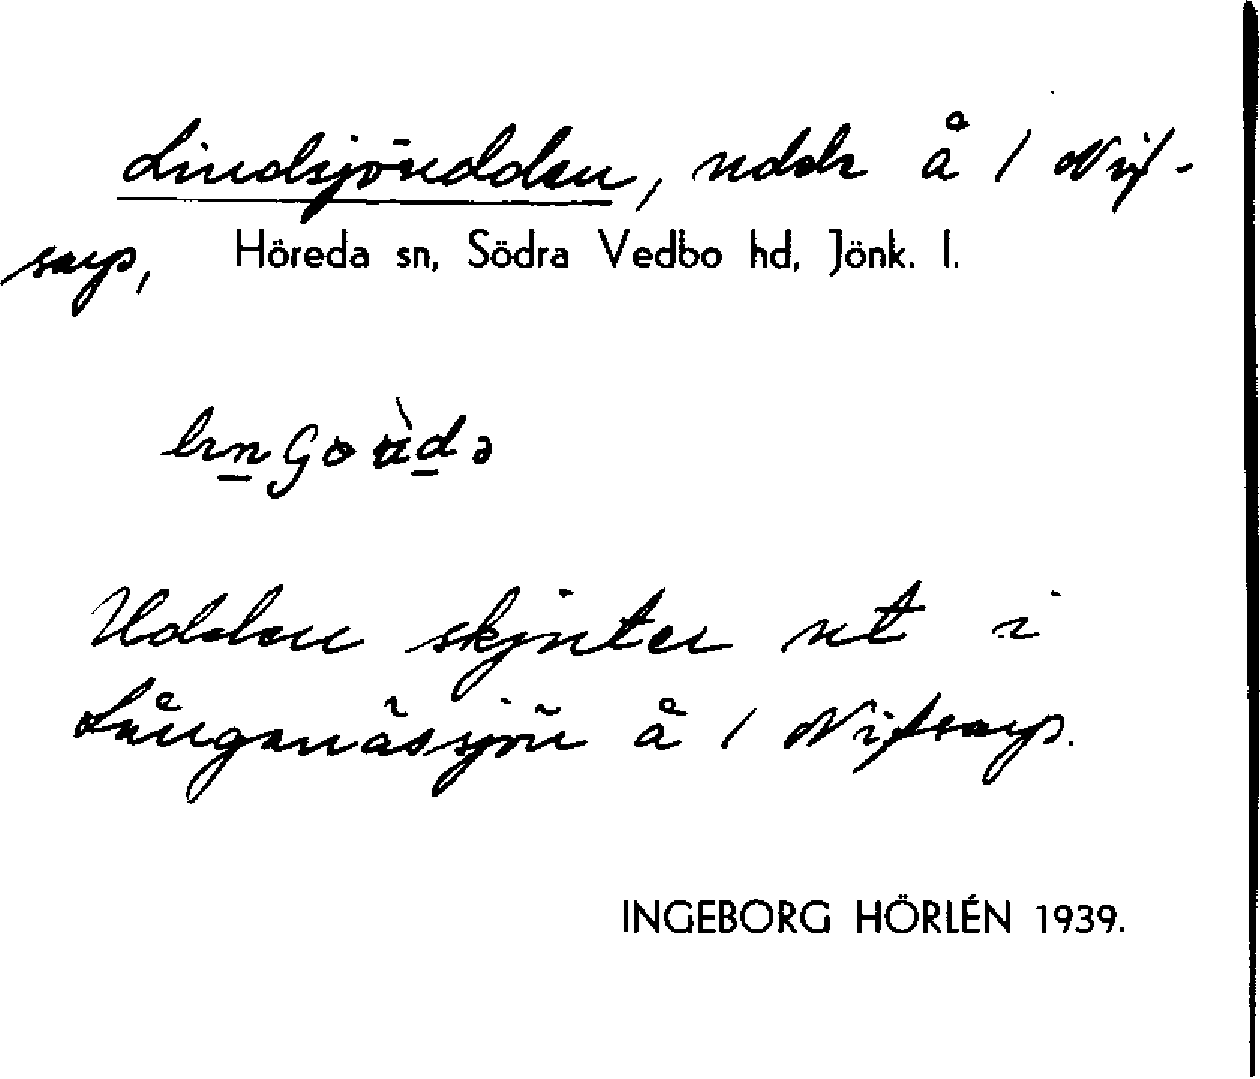 Lindsjöudden, udde å 1 Nif-
sarp, Höreda sn, Södra Vedbo hd, Jönk. l.
Udden skjuter ut i
Långanässjön å 1 Nifsarp.
INGEBORG HÖRLÉN 1939.